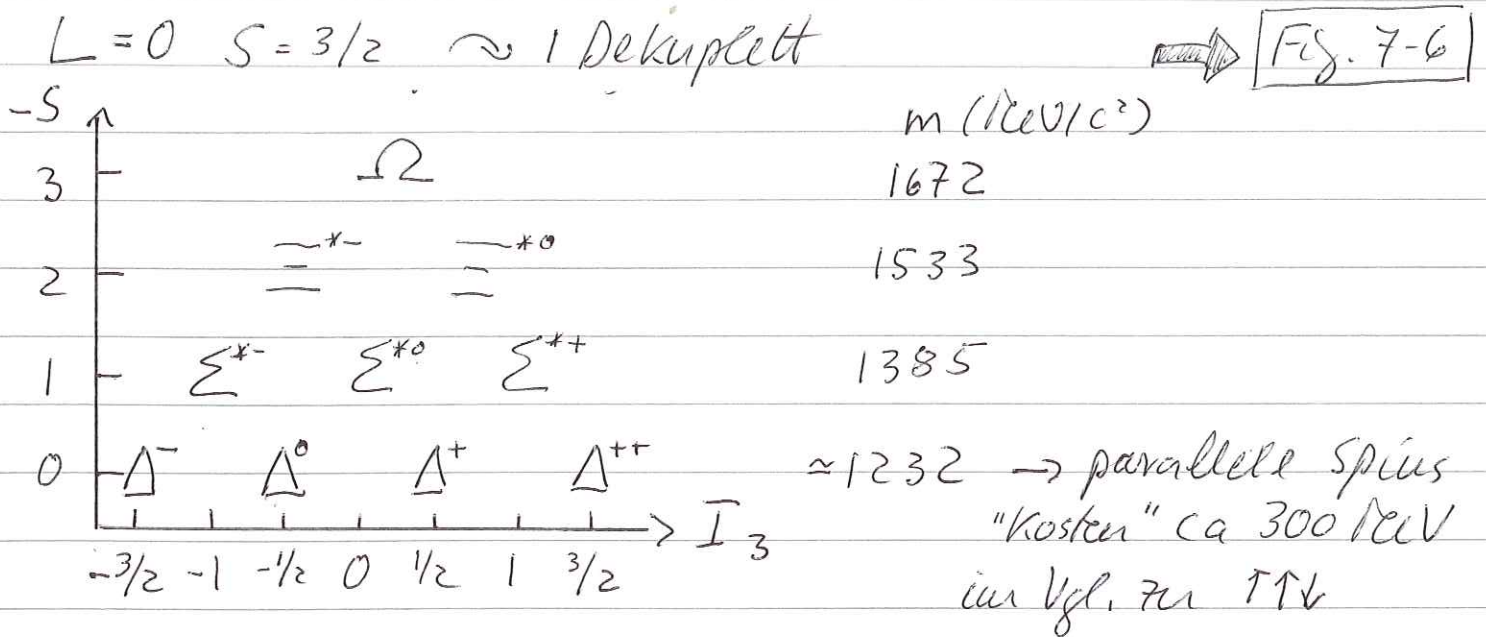 L = 0 S = 3/2 ~ 1 Dekuplett ⇒ Fig. 7-6
-S m (MeV/c²)
3 Ω 1672
2 Ξ*- Ξ*0 1533
1 Σ*- Σ*0 Σ*+ 1385
0 Δ- Δ0 Δ+ Δ++ ≈1232 → parallele Spins
I3 "Kosten" ca 300 MeV
-3/2 -1 -1/2 0 1/2 1 3/2 im Vgl. zu ↑↑↓